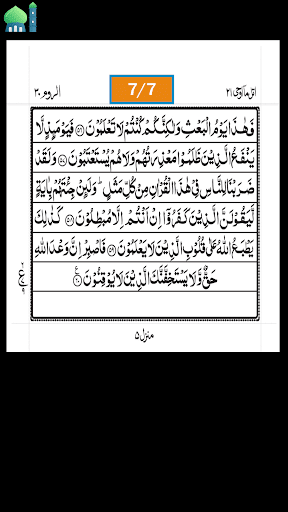 اتل مآ اوحی ٢١
7/7
الروم ٣٠
فَهٰذَا يَوْمُ الْبَعْثِ وَلٰكِنَّكُمْ كُنْتُمْ لَا تَعْلَمُوْنَ ﴿٥٦﴾ فَيَوْمَئِذٍ لَّا
يَنْفَعُ الَّذِيْنَ ظَلَمُوْا مَعْذِرَتُهُمْ وَلَا هُمْ يُسْتَعْتَبُوْنَ ﴿٥٧﴾ وَلَقَدْ
ضَرَبْنَا لِلنَّاسِ فِيْ هٰذَا الْقُرْاٰنِ مِنْ كُلِّ مَثَلٍ ؕ وَلَئِنْ جِئْتَهُمْ بِاٰيَةٍ
لَّيَقُوْلَنَّ الَّذِيْنَ كَفَرُوْۤا اِنْ اَنْتُمْ اِلَّا مُبْطِلُوْنَ ﴿٥٨﴾ كَذٰلِكَ
يَطْبَعُ اللّٰهُ عَلٰى قُلُوْبِ الَّذِيْنَ لَا يَعْلَمُوْنَ ﴿٥٩﴾ فَاصْبِرْ اِنَّ وَعْدَ اللّٰهِ
حَقٌّ وَّلَا يَسْتَخِفَّنَّكَ الَّذِيْنَ لَا يُوْقِنُوْنَ ﴿٦٠﴾
منزل ٥